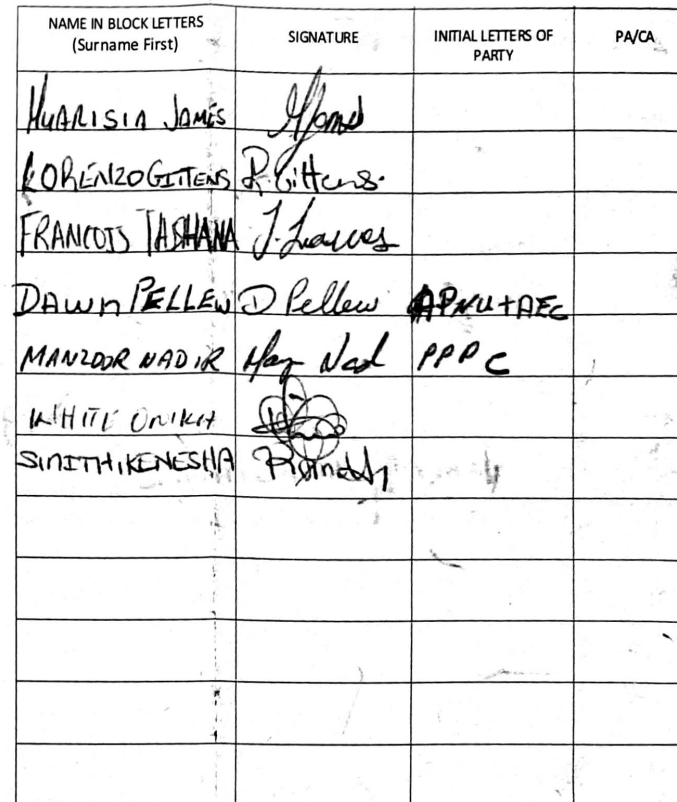 NAME IN BLOCK LETTERS (Surname First) SIGNATURE INITIAL LETTERS OF PARTY PA/CA
HUARISIA JAMES HJames
LORENZO GITTENS R. Gittens.
FRANCOIS TASHANA
DAWN PELLEW D Pellew APNU+AFC
MANZOOR NADIR Nad PPP C
WHITE ONIKA
SMITH KENESHA